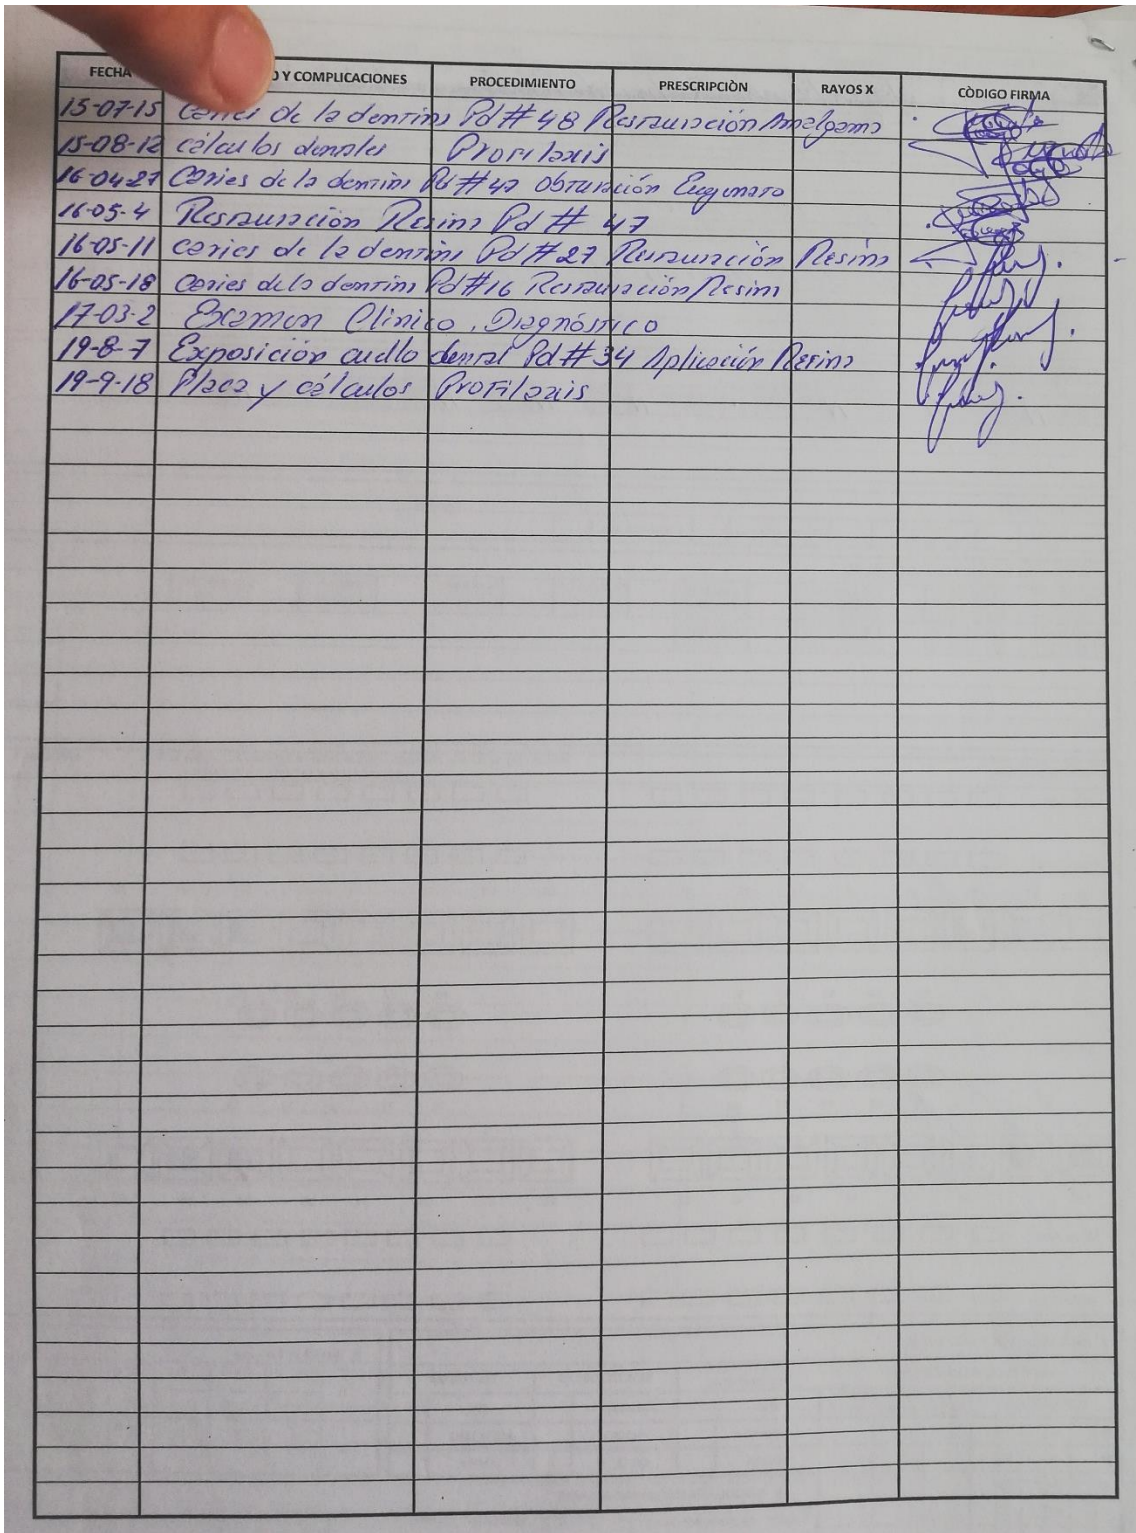 FECHA O Y COMPLICACIONES PROCEDIMIENTO PRESCRIPCIÒN RAYOS X CÒDIGO FIRMA
15-07-15 caries de la dentina Pd # 48 Restauración Amalgama
15-08-12 cálculos dentales Profilaxis
16-04-27 Caries de la dentina Pd # 47 Obturación Eugenato
16-05-4 Restauración Resina Pd # 47
16-05-11 caries de la dentina Pd # 27 Restauración Resina
16-05-18 Caries de la dentina Pd # 16 Restauración Resina
17-03-2 Examen Clínico, Diagnóstico
19-8-7 Exposición cuello dental Pd # 34 Aplicación Resina
19-9-18 Placa y cálculos Profilaxis